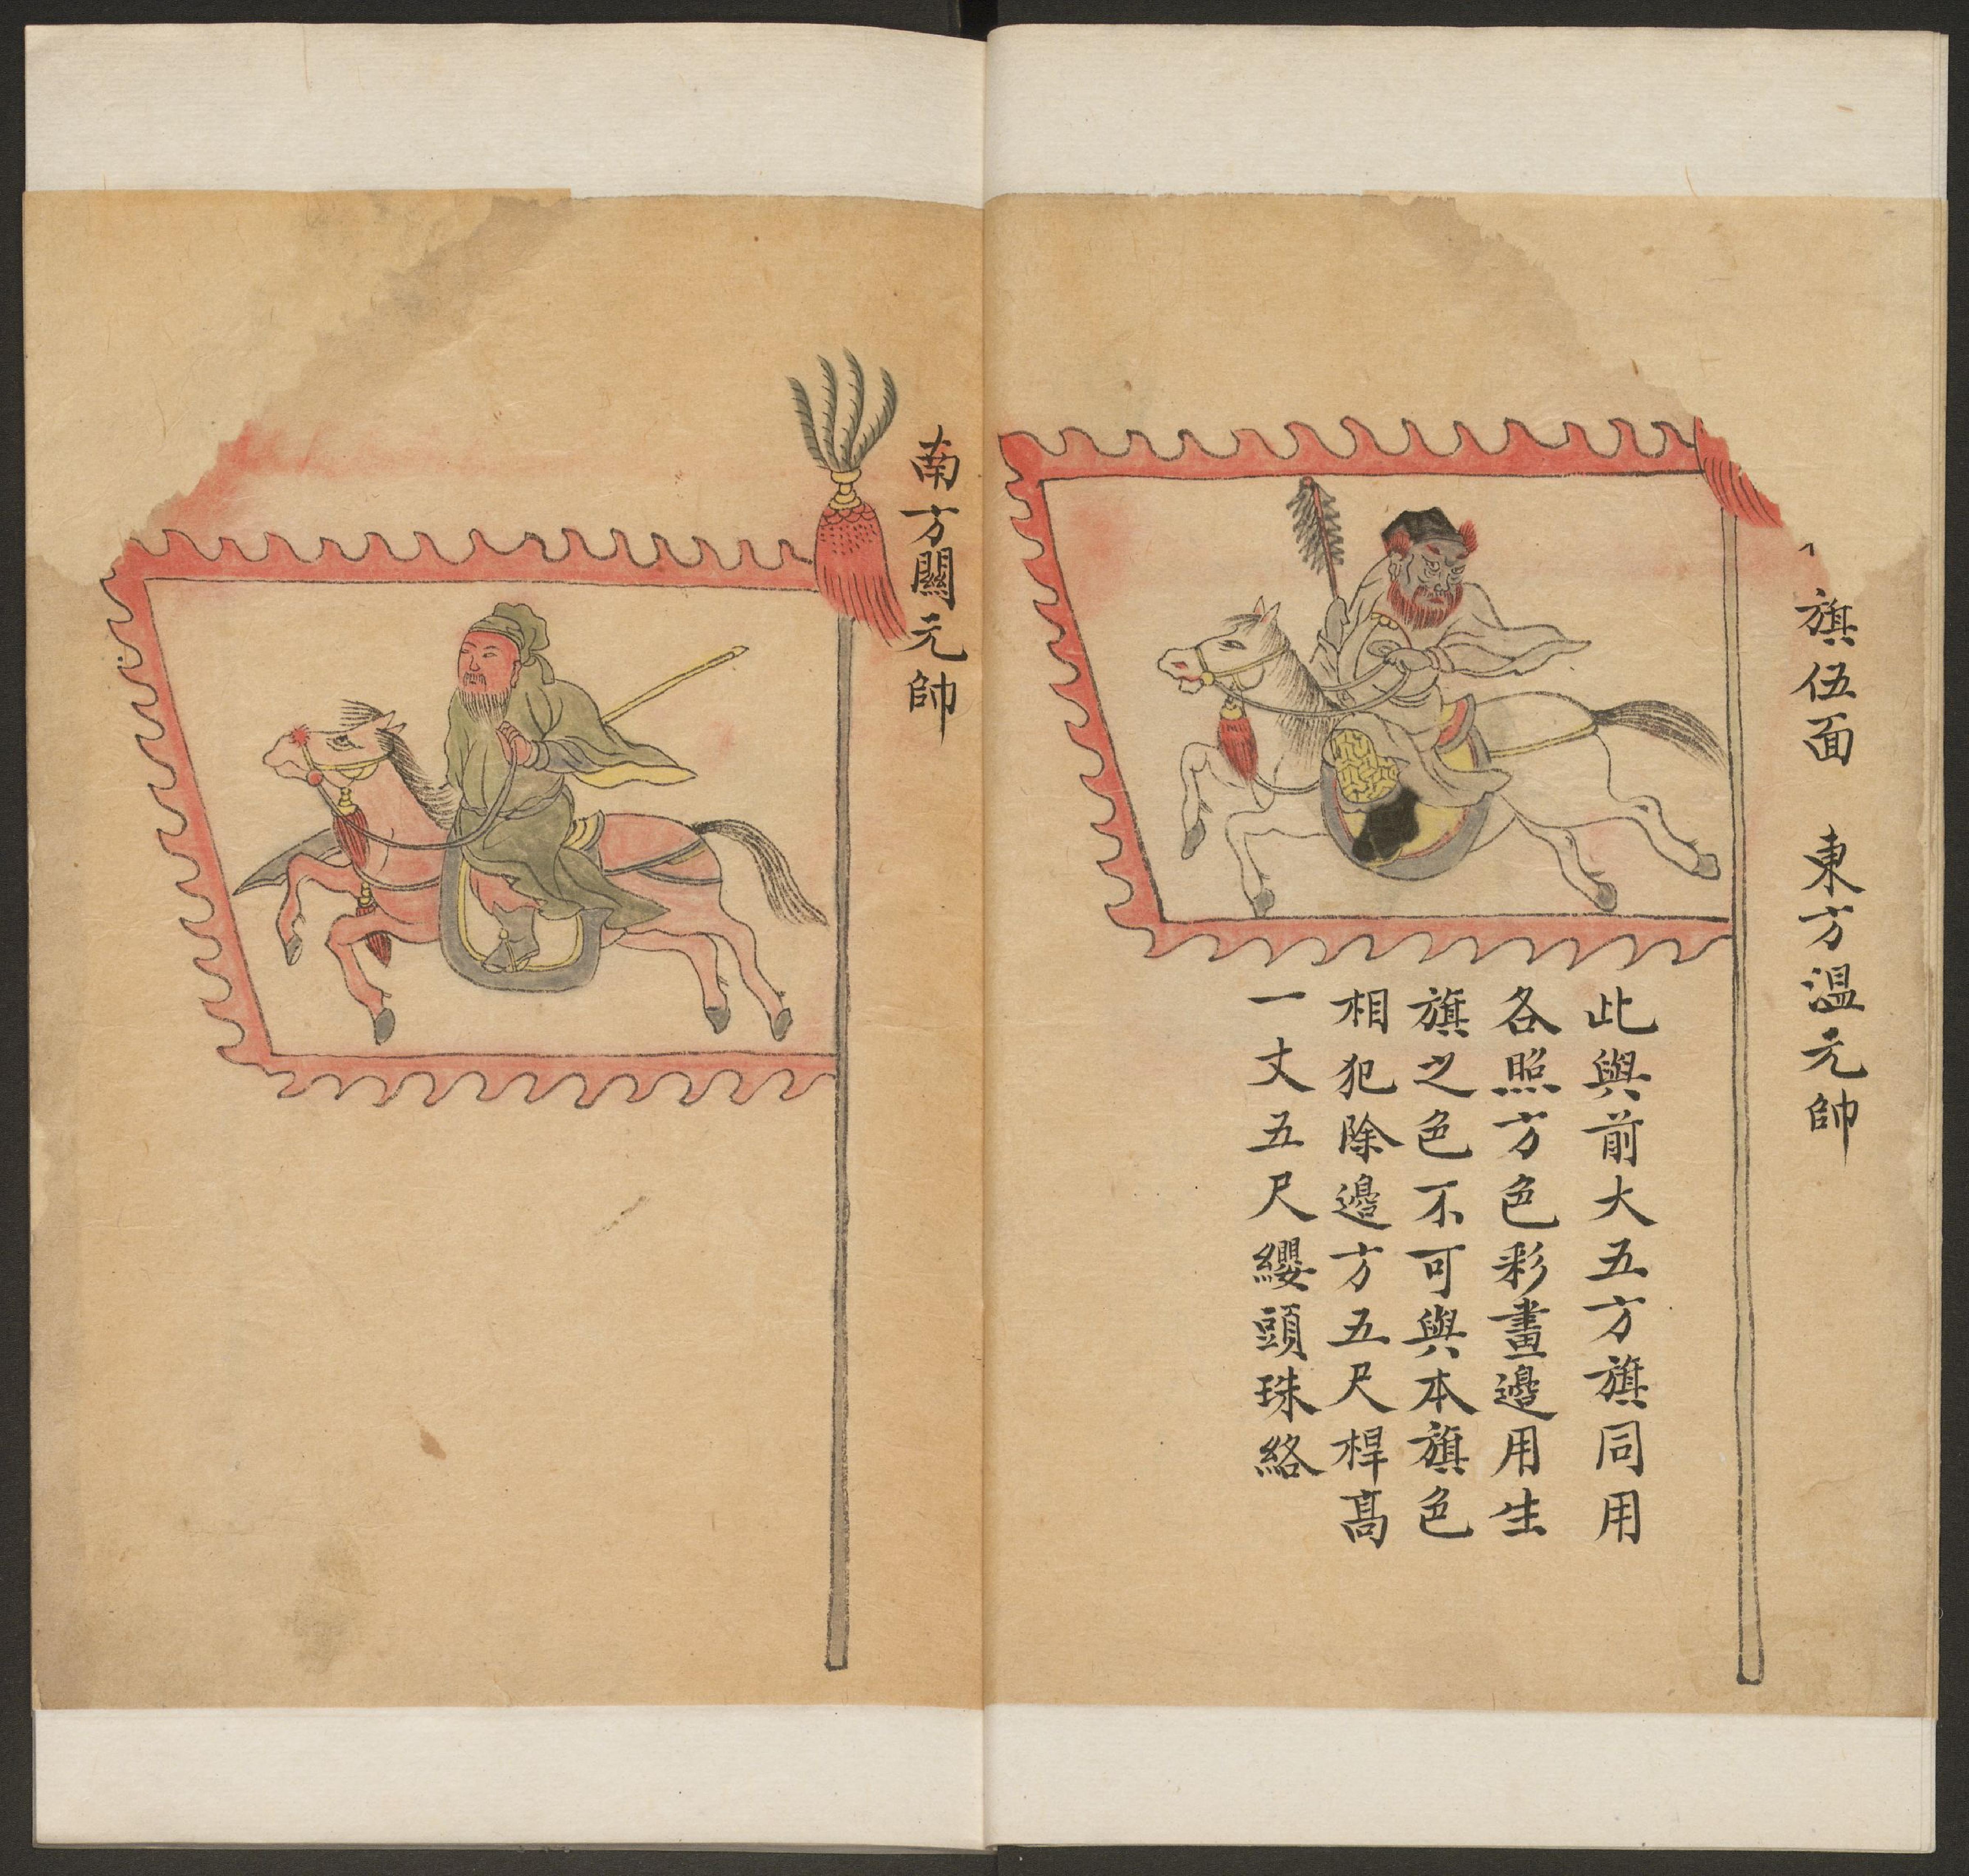 旗伍面　東方温元帥
此與前大五方旗同用
各照方色彩畫邊用生
旗之色不可與本旗色
相犯除邊方五尺桿高
一丈五尺纓頭珠絡
南方關元帥